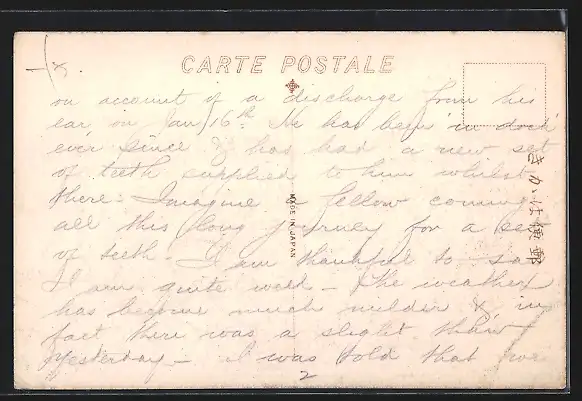 CARTE POSTALE
on account of a discharge from his
ear on Jany 16th. He has been 'in dock'
ever since & has had a new set
of teeth supplied to him whilst
there. Imagine a fellow coming
all this long journey for a set
of teeth. I am thankful to say
I am quite well — The weather
has become much milder & in
fact there was a slight thaw
yesterday — I was told that we
2
MADE IN JAPAN
きかは便郵